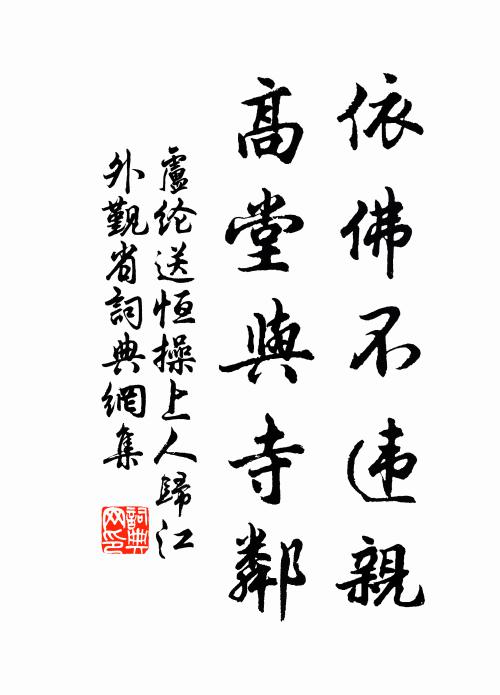 依佛不违親
高堂與寺鄰
盧纶送恒操上人歸江
外覲省詞典網集
詞典
网印